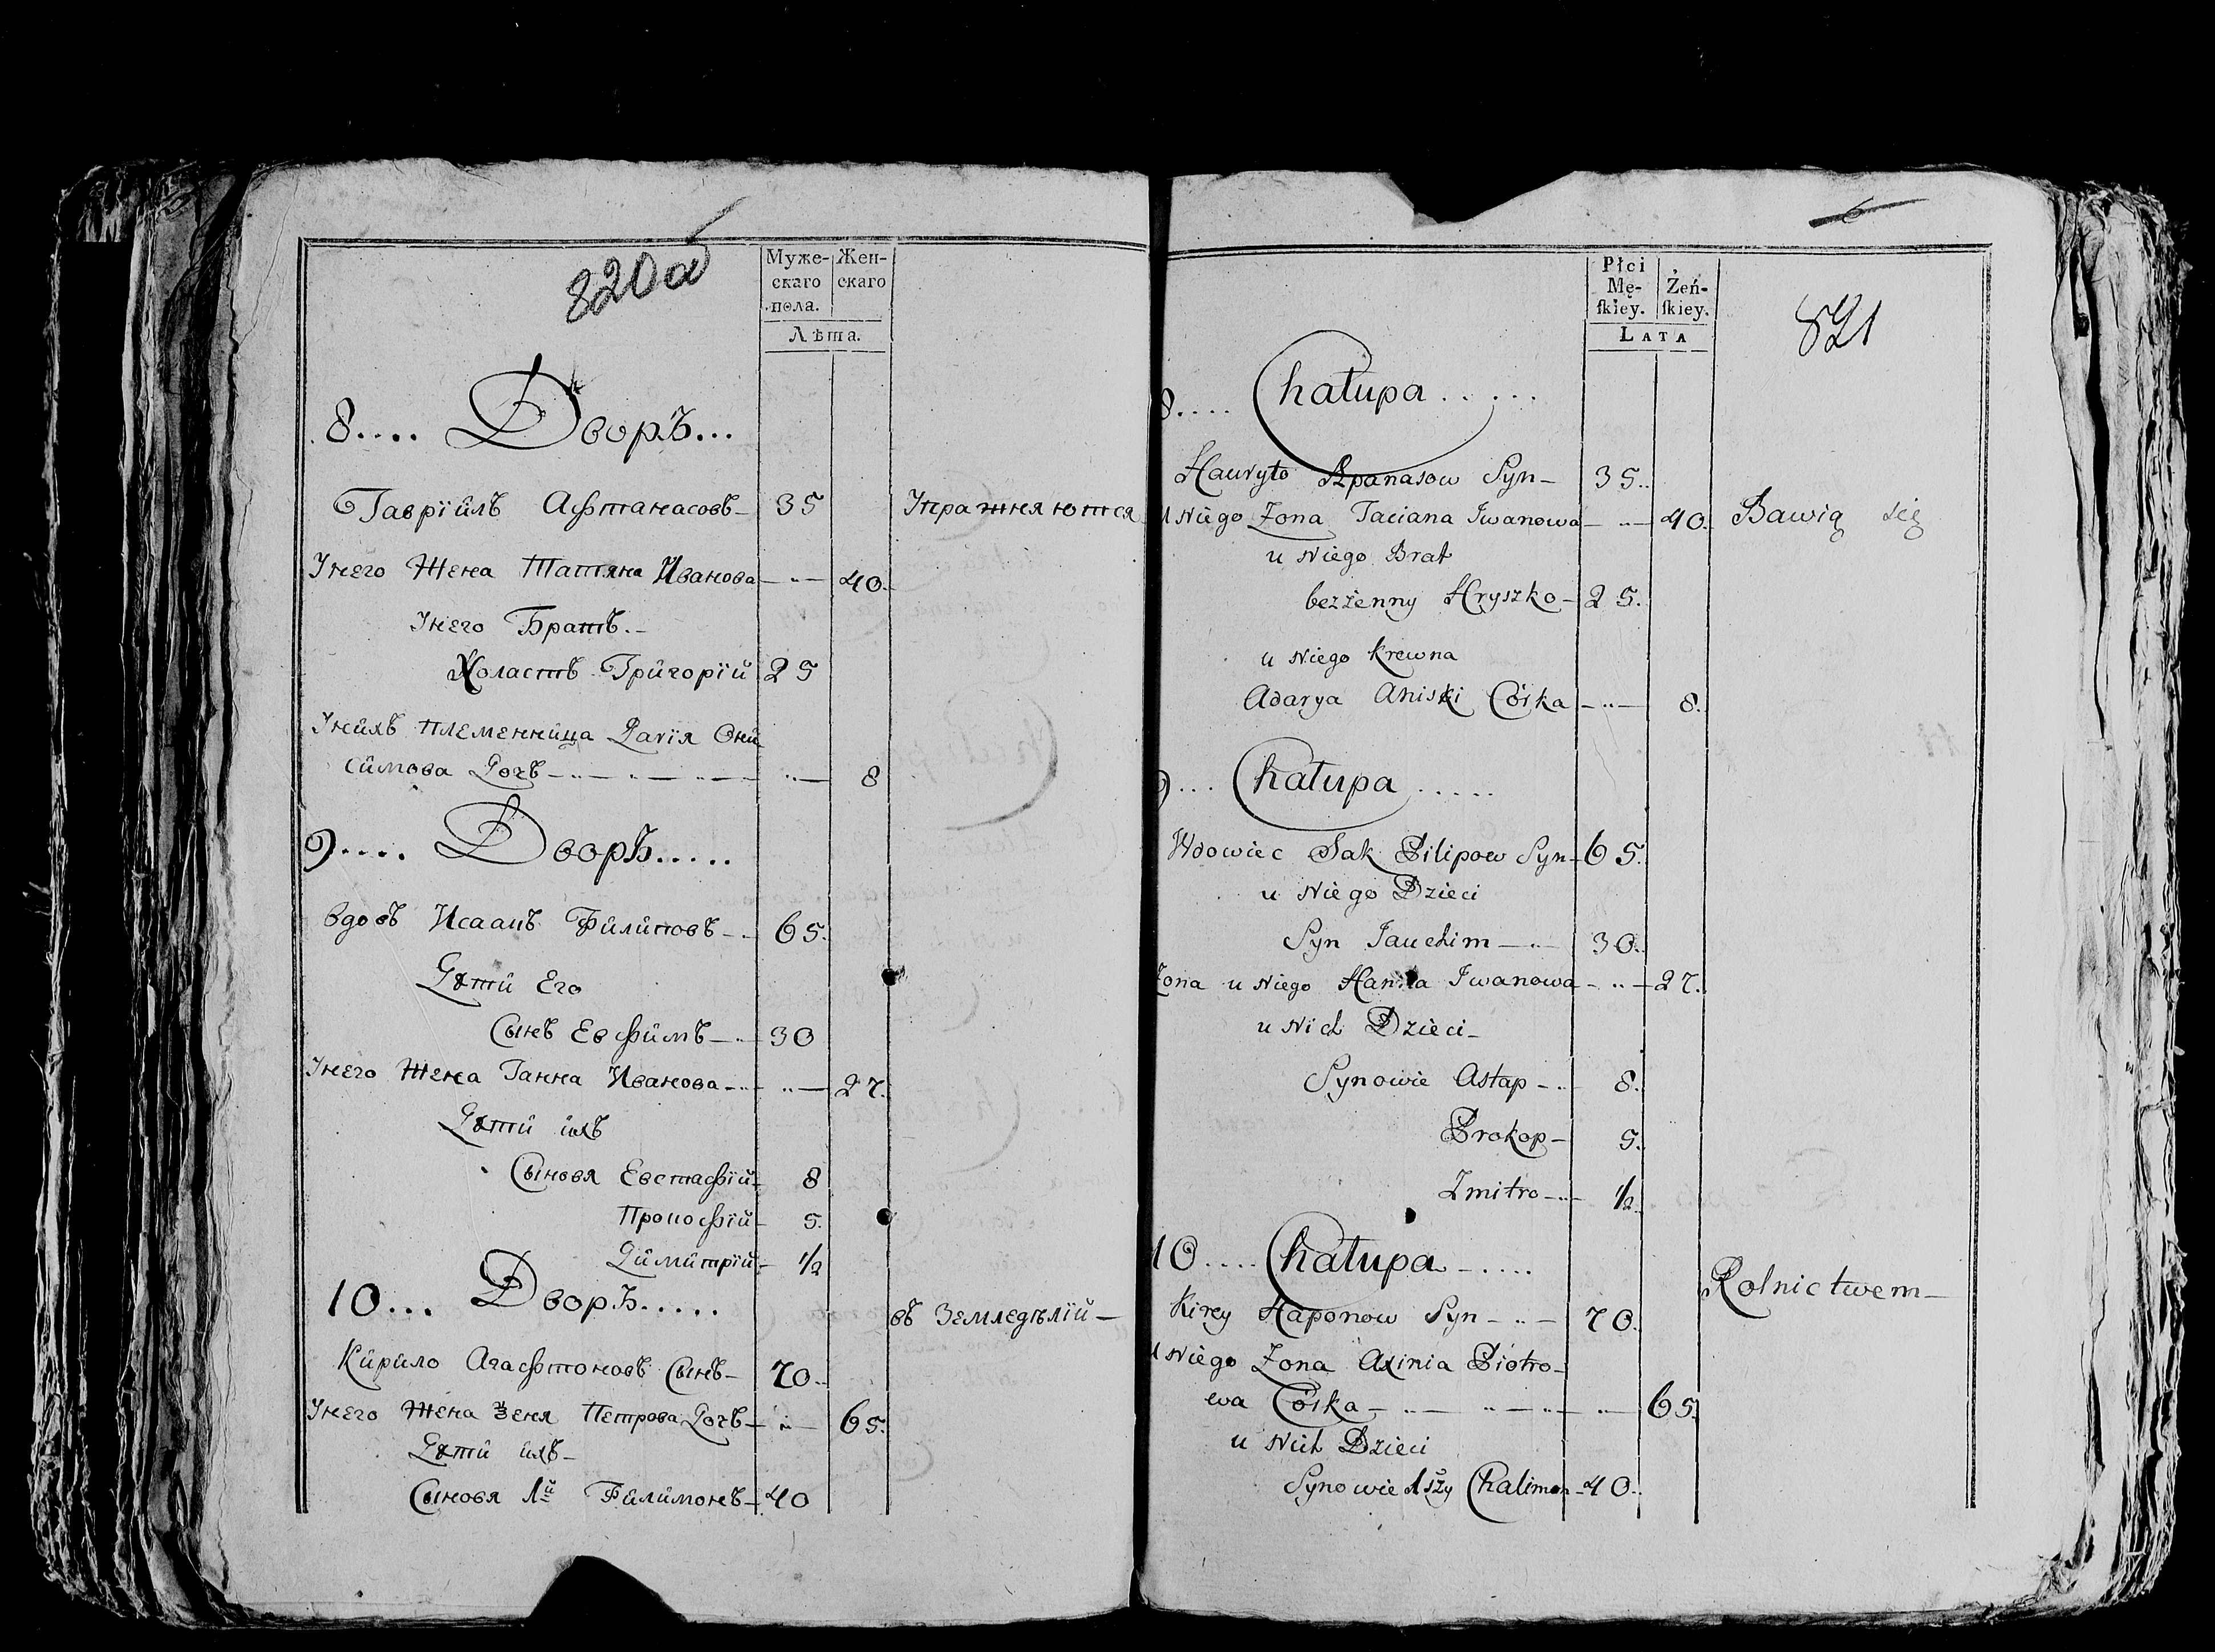 820a
Муже- Жен-
скаго скаго
пола.
Лѣта.
8.... Дворъ...
Гаврїилъ Афтанасовъ 35 Упражняются
Унего Жена Татяна Иванова 40.
Унего Братъ.
Холастъ Григорїй 25
Унейхъ племенница Дарїя Они
симова Дочь 8
9.... Дворъ.....
Вдовъ Исаакъ Филиповъ 65.
Дѣти Его
Сынъ Евфимъ 30
Унего Жена Ганна Иванова 27.
Дѣти ихъ
Сыновя Евстафїй 8
Прокофїй 5.
Димитрїй 1/2
10... Дворъ.....
въ Земледѣлїй
Кирило Агафтоновъ Сынъ 70.
Унего Жена Зеня Петрова Дочь 65.
Дѣти ихъ
Сыновя 1й Филимонъ 40
6
821
Płci
Mę- Żeń-
ſkiey. ſkiey.
LATA
8.... Chałupa......
Hauryło Apanasow Syn 35..
u Niego Zona Taciana Iwanowa 40. Bawią się
u Niego Brat
bezżenny Hryszko 25.
u Niego Krewna
Adarya Aniski Córka 8.
9... Chałupa.....
Wdowiec Sak Pilipow Syn 65.
u Niego Dzieci
Syn Jauchim 30..
Zona u Niego Hanna Iwanowa 27.
u Nich Dzieci
Synowie Astap 8.
Prokop 5.
Zmitro 1/2.
10.... Chałupa.....
Rolnictwem
Kirey Haponow Syn 70.
u Niego Zona Axinia Piotro-
wa Córka 65.
u Nich Dzieci
Synowie 1szy Chalimon 40..